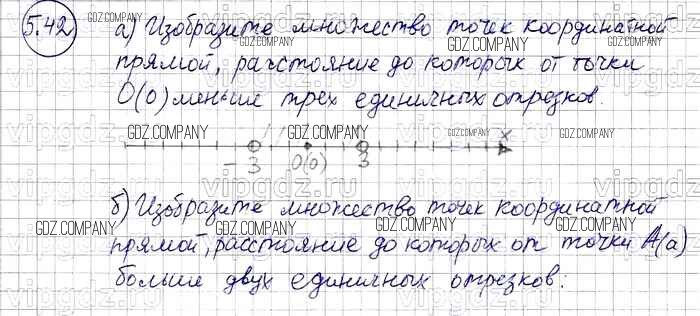 5.42
а) Изобразите множество точек координатной
прямой, расстояние до которых от точки
О(0) меньше трех единичных отрезков.
-3 0(0) 3 x
б) Изобразите множество точек координатной
прямой, расстояние до которых от точки А(а)
больше двух единичных отрезков:
GDZ.COMPANY GDZ.COMPANY GDZ.COMPANY
GDZ.COMPANY GDZ.COMPANY GDZ.COMPANY
GDZ.COMPANY GDZ.COMPANY GDZ.COMPANY
GDZ.COMPANY GDZ.COMPANY GDZ.COMPANY
vipgdz.ru